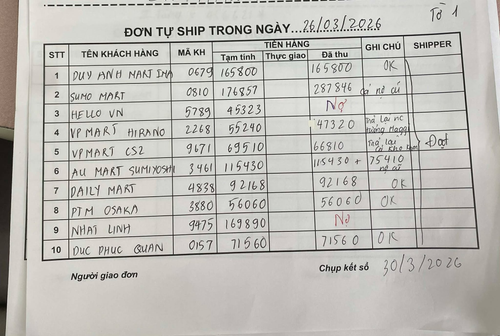 Tờ 1
ĐƠN TỰ SHIP TRONG NGÀY 26/03/2026
STT TÊN KHÁCH HÀNG MÃ KH TIỀN HÀNG GHI CHÚ SHIPPER
Tạm tính Thực giao Đã thu
1 DUY ANH MART IMA 0679 165800 165800 OK
2 SUMO MART 0810 176857 287846 nợ cũ
3 HELLO VN 5789 45323 Nợ
4 VPMART HIRANO 2268 55240 47320 Trả lại nc
5 VPMART CS2 9671 69510 66810 Trả lại Đạt
6 AU MART SUMIYOSHI 3461 115430 115430 + 75410 nợ cũ
7 DAILY MART 4838 92168 92168 OK
8 PTM OSAKA 3880 56060 56060 OK
9 NHAT LINH 9475 169890 Nợ
10 DUC PHUC QUAN 0157 71560 71560 OK
Người giao đơn Chụp kết sổ 30/3/2026